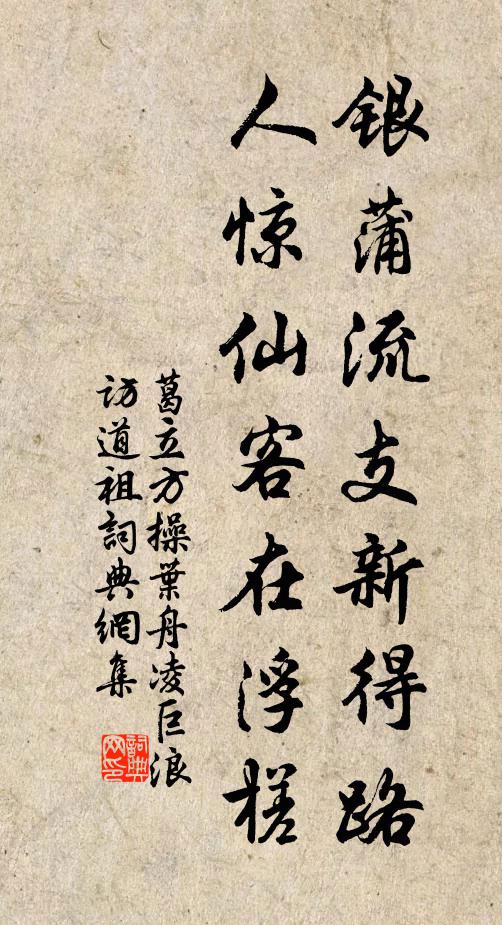 银蒲流支新得路
人惊仙客在浮槎
葛立方操葉舟凌巨浪
访道祖詞典網集
詞典
网印